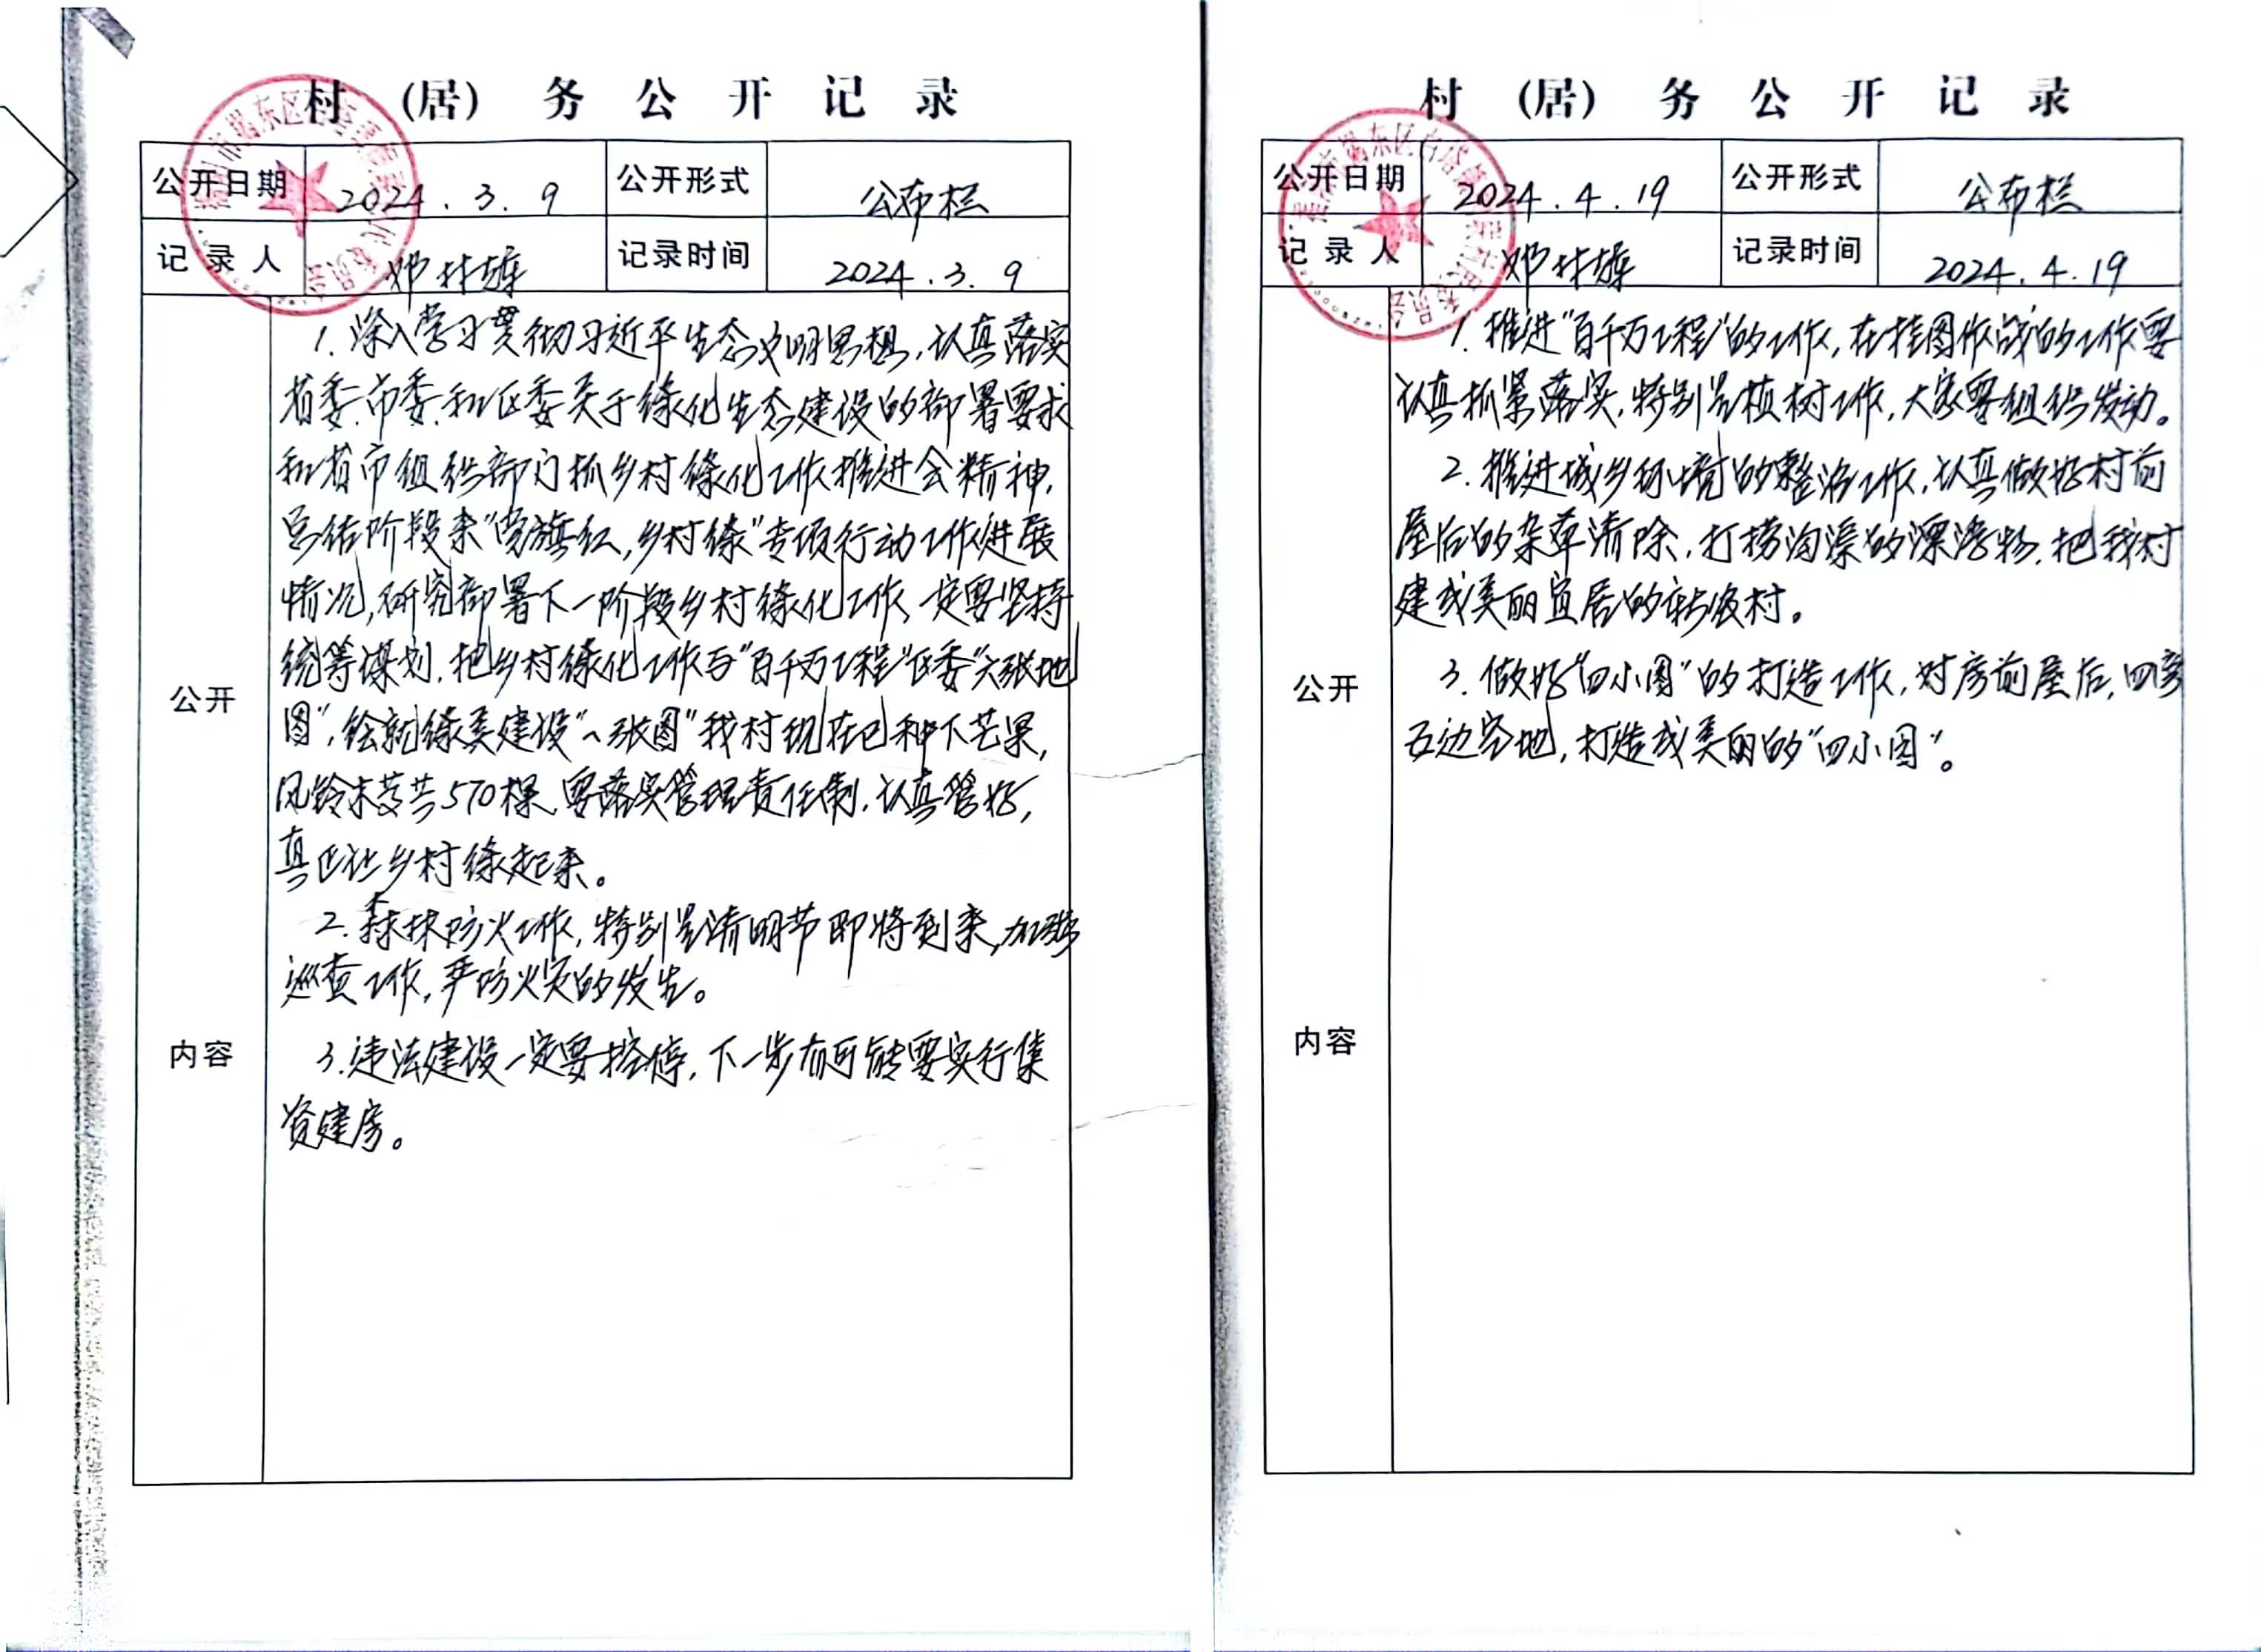 村（居）务公开记录
公开日期 2024.3.9 公开形式 公布栏
记录人 邓林雄 记录时间 2024.3.9
公开内容
1. 深入学习贯彻习近平生态文明思想，认真落实
省委、市委和区委关于绿化生态建设的部署要求
和省市组织部门抓乡村绿化工作推进会精神，
总结阶段来“党旗红，乡村绿”专项行动工作进展
情况，研究部署下一阶段乡村绿化工作、一定要坚持
统筹谋划，把乡村绿化工作与“百千万工程”区委“六张地
图”，绘就绿美建设“一张图”我村现在已种下芒果，
风铃木等共570棵，要落实管理责任制，认真管好，
真正让乡村绿起来。
2. 森林防火工作，特别是清明节即将到来，加强
巡查工作，严防火灾的发生。
3. 违法建设一定要控停，下一步有可能要实行集
资建房。
村（居）务公开记录
公开日期 2024.4.19 公开形式 公布栏
记录人 邓林雄 记录时间 2024.4.19
公开内容
1. 推进“百千万工程”的工作，在挂图作战的工作要
认真抓紧落实，特别是植树工作，大家要组织发动。
2. 推进城乡环境的整治工作，认真做好村前
屋后的杂草清除，打捞沟渠的漂浮物，把我村
建成美丽宜居的新农村。
3. 做好“四小园”的打造工作，对房前屋后，四旁
五边空地，打造成美丽的“四小园”。